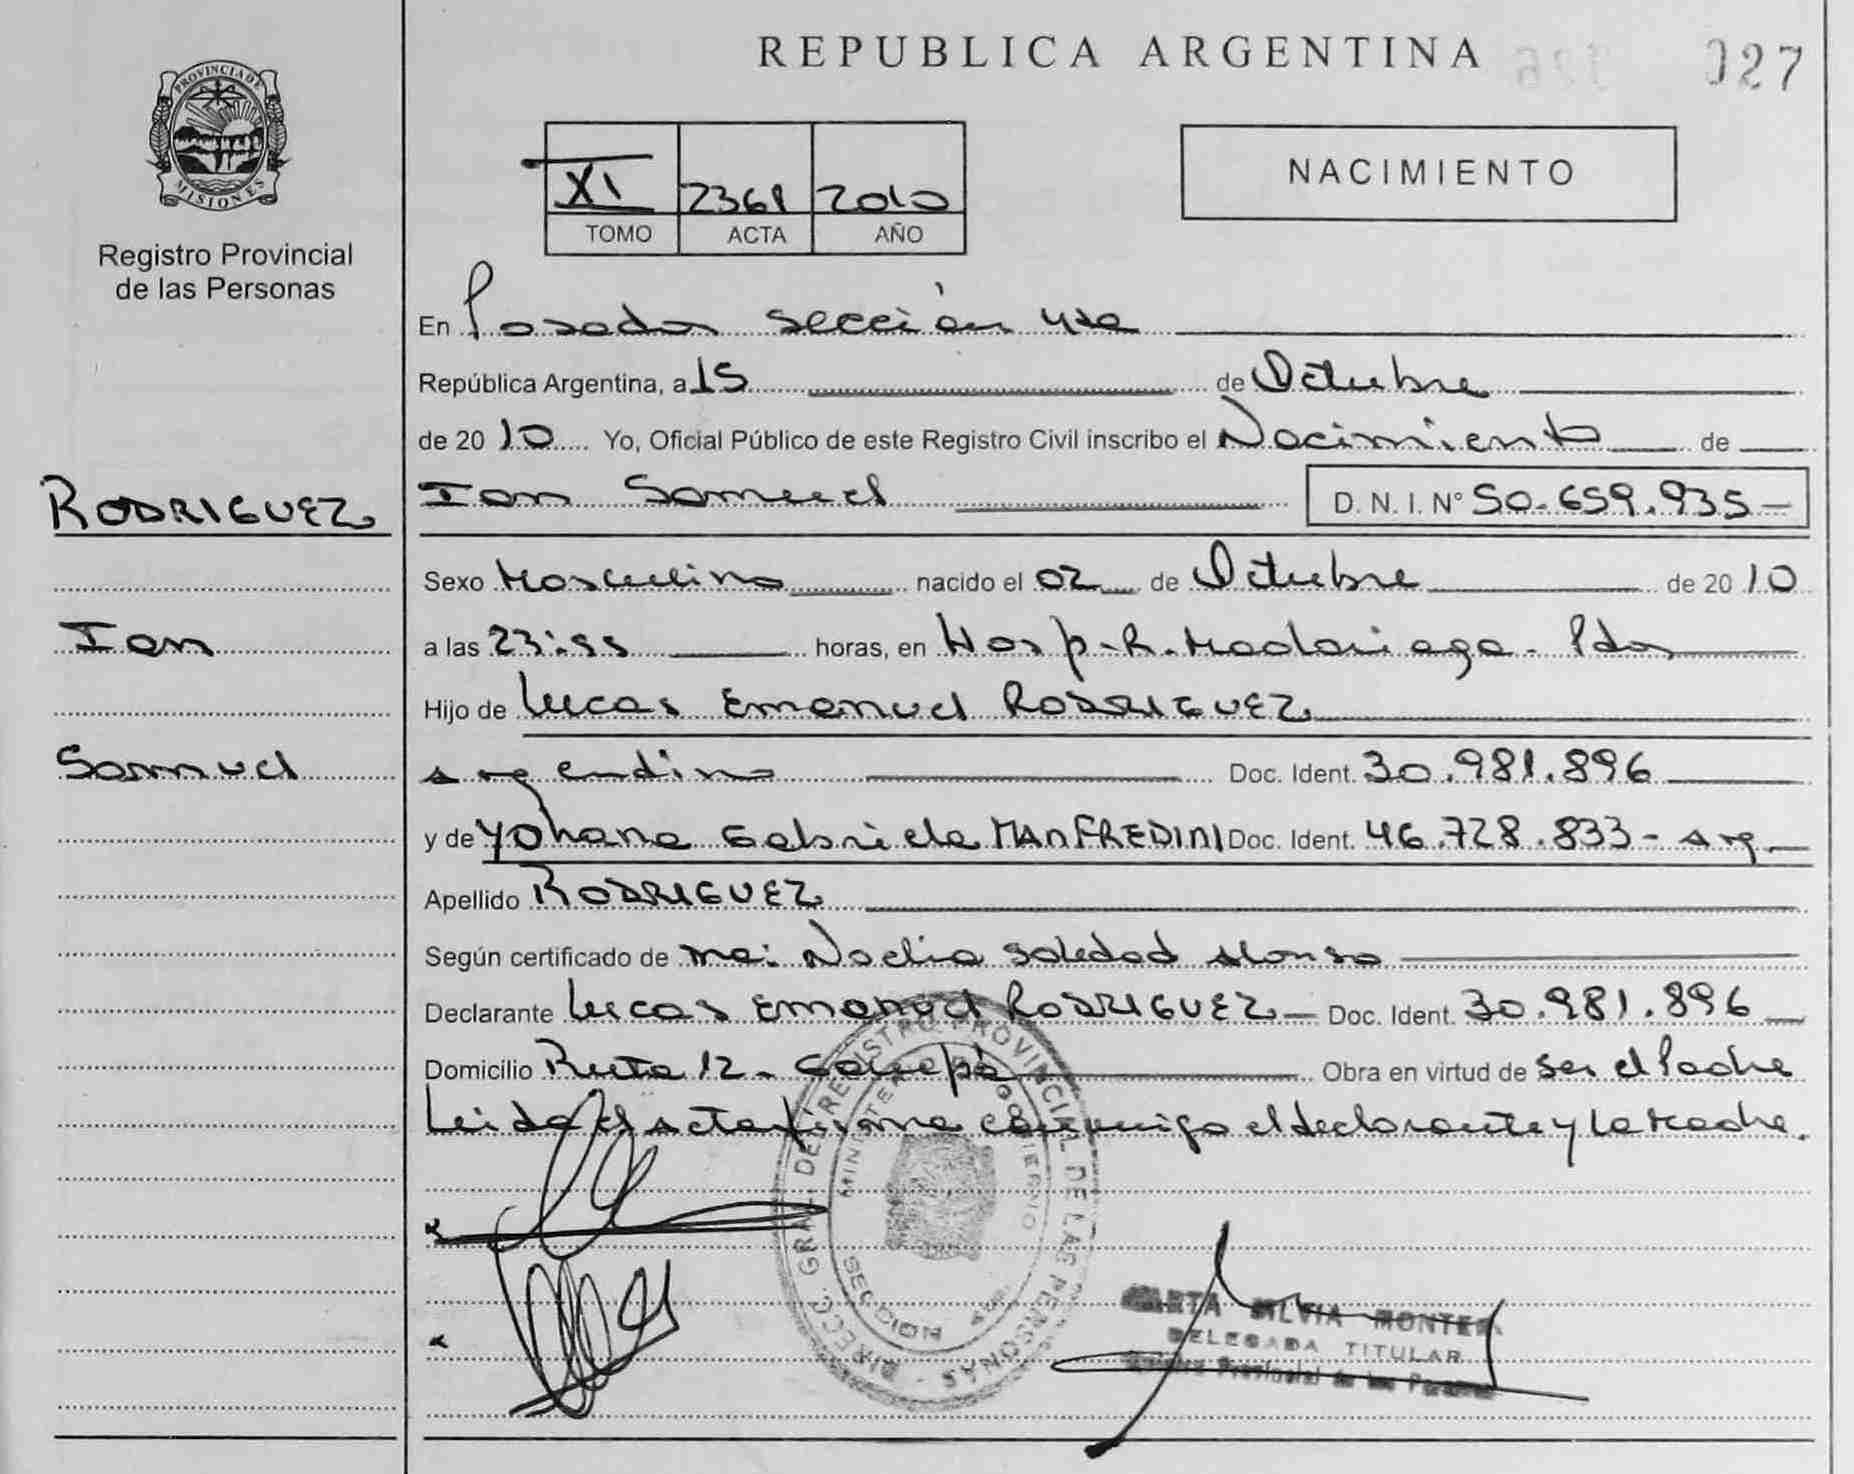 REPUBLICA ARGENTINA
027
PROVINCIA DE
MISIONES
Registro Provincial
de las Personas
XI 2361 2010
TOMO ACTA AÑO
NACIMIENTO
En Posadas sección 4ta
República Argentina, a 15 de Octubre
de 20 10 Yo, Oficial Público de este Registro Civil inscribo el Nacimiento de
RODRIGUEZ
Ian Samuel D. N. I. N° 50.659.935-
Sexo Masculino nacido el 02 de Octubre de 20 10
Ian
a las 23:55 horas, en Hosp. R. Madariaga - Pdas
Hijo de Lucas Emanuel RODRIGUEZ
Samuel
argentino Doc. Ident. 30.981.896
y de Yohana Gabriela MANFREDINI Doc. Ident. 46.728.833 - arg.
Apellido RODRIGUEZ
Según certificado de Noelia Soledad Alonso
Declarante Lucas Emanuel RODRIGUEZ - Doc. Ident. 30.981.896
Domicilio Ruta 12 - Garupá Obra en virtud de ser el Padre
Leida el acta firma conmigo el declarante y la Madre.
DIRECC. GRAL. DE REGISTRO PROVINCIAL DE LAS PERSONAS
MINISTERIO DE GOBIERNO
SECCION 4ta.
MARTA SILVIA MONTER
DELEGADA TITULAR
Registro Provincial de las Personas